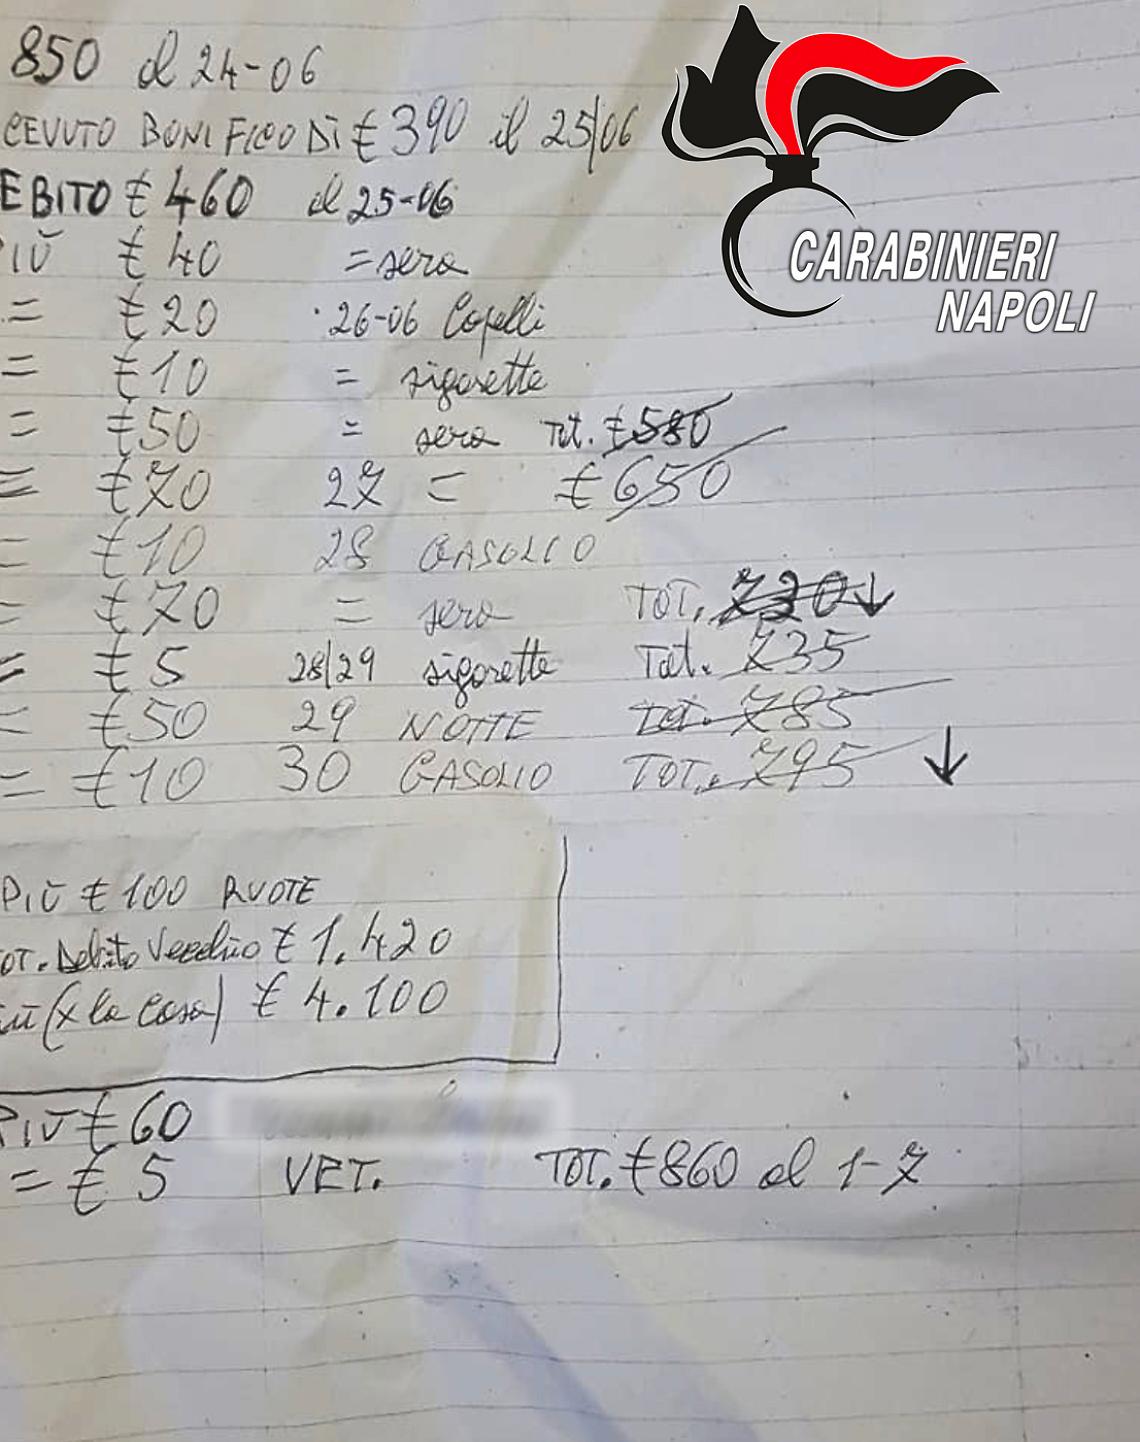 850 al 24-06
CEVUTO BONIFICO DI € 390 il 25/06
EBITO € 460 al 25-06
IÙ € 40 = sera
= € 20 26-06 Capelli
= € 10 = sigarette
= € 50 = sera Tot. € 580
= € 70 27 = € 650
= € 10 28 GASOLIO
= € 70 = sera TOT. 730
= € 5 28/29 sigarette Tot. 735
= € 50 29 NOTTE Tot. 785
= € 10 30 GASOLIO TOT. 795
PIÙ € 100 RUOTE
OT. Debito Vecchio € 1.420
iù (x la casa) € 4.100
PIÙ € 60
= € 5 VET. TOT. € 860 al 1-7
CARABINIERI
NAPOLI